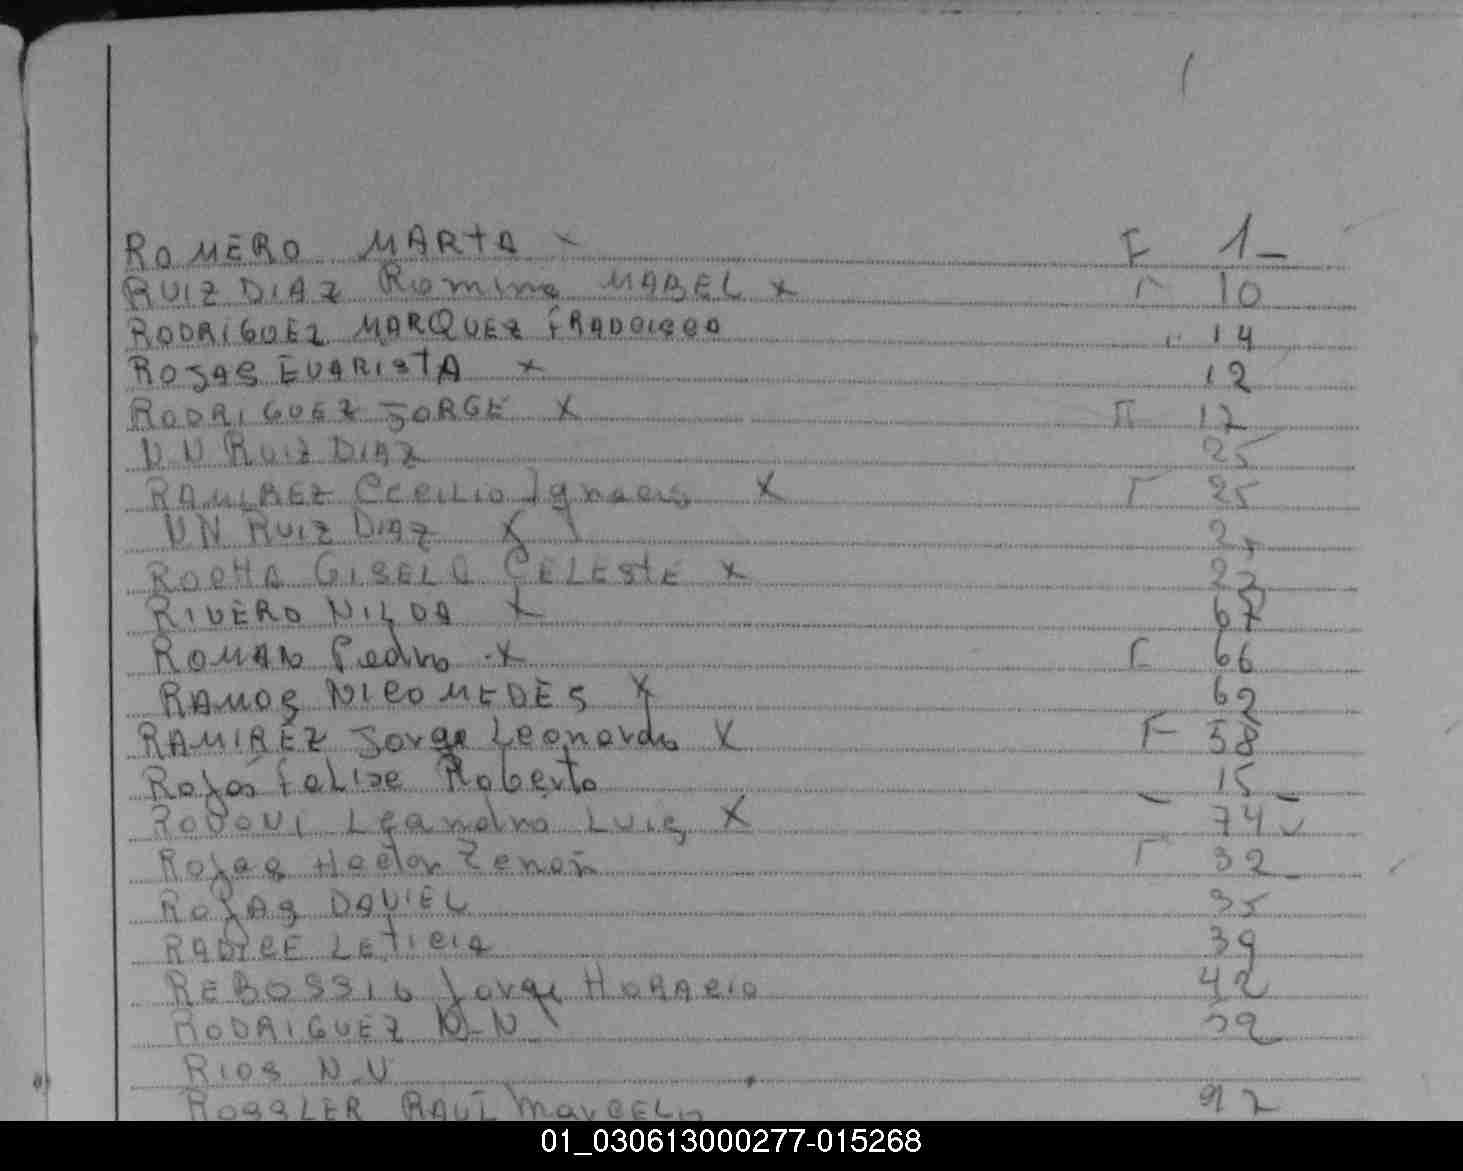 ROMERO MARTA x F 1_
RUIZ DIAZ Romina MABEL x 10
RODRIGUEZ MARQUEZ FRANCISCO 14
ROJAS EVARISTA x 12
RODRIGUEZ JORGE x 17
NN RUIZ DIAZ 25
RAMIREZ CECILIO Ignacio x 25
NN RUIZ DIAZ x
ROCHA GISELA CELESTE x 22
RIVERO NILDA x 67
ROMAN Pedro x 66
RAMOS NICOMEDES x 62
RAMIREZ Jorge Leonardo x F 58
Rojas Felipe Roberto 15
Leandro Luis x 74
Rojas Hector Zenon 32
ROJAS DANIEL 35
RADICE LETICIA 39
REBOSSIO Jorge HORACIO 42
RODRIGUEZ N-N 52
RIOS N-N
ROSSLER RAUL MARCELO 97
01_030613000277-015268